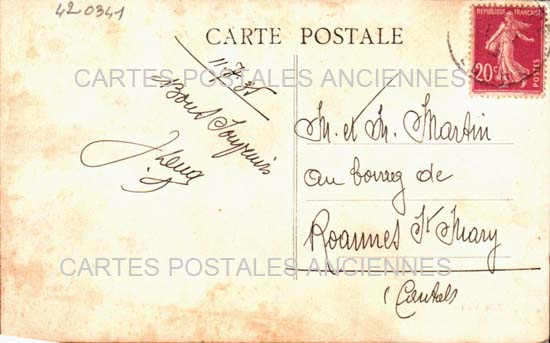 42 0341
CARTE POSTALE
REPUBLIQUE FRANÇAISE
20c
POSTES
11.7.35
Bons Souvenirs
M. et M. Martin
au bourg de
Roannes St Mary
Cantal
CARTES POSTALES ANCIENNES
CARTES POSTALES ANCIENNES